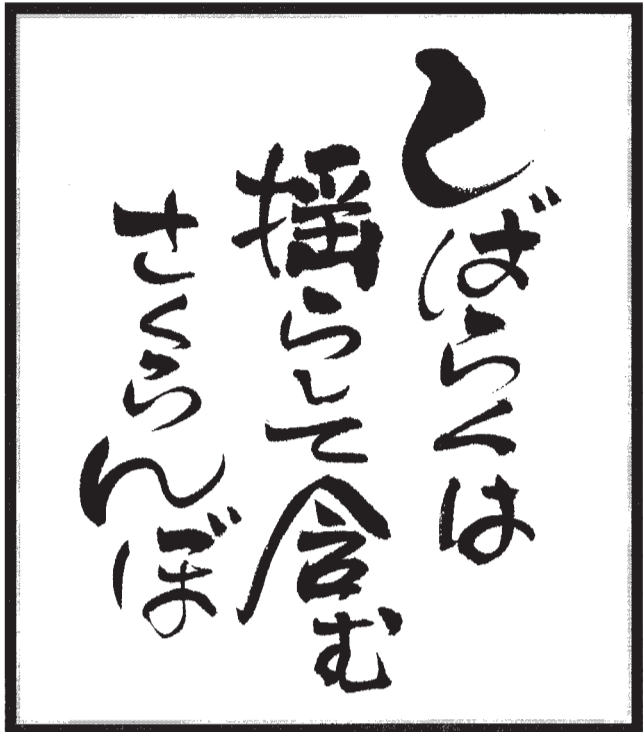 しばらくは
揺らして含む
さくらんぼ